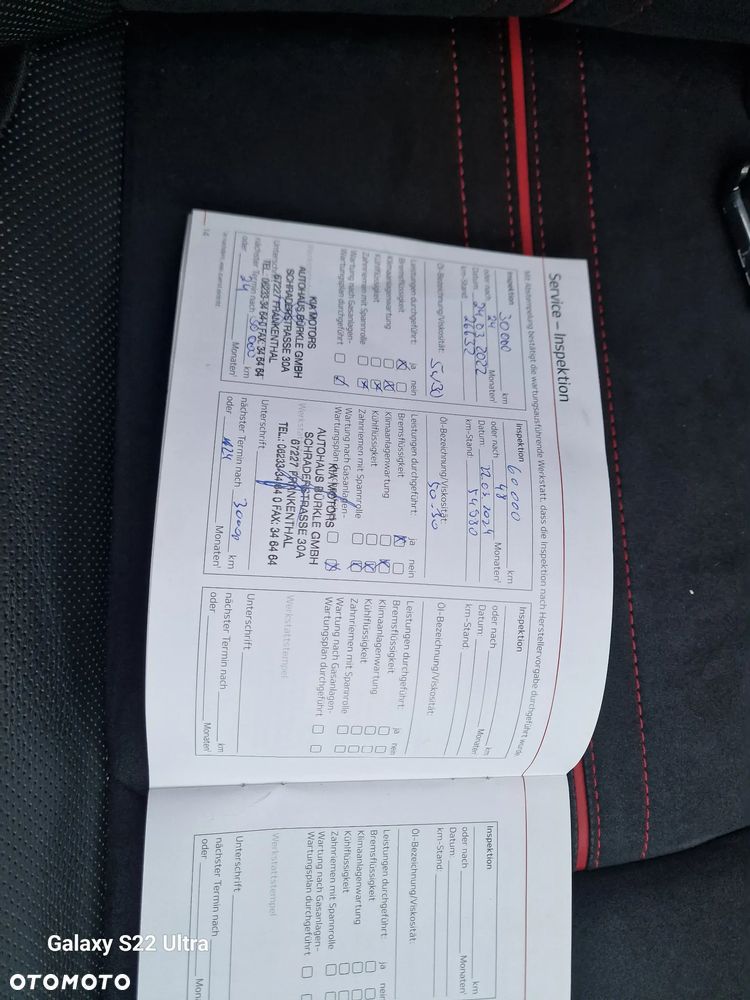 Service – Inspektion
Mit Abstempelung bestätigt die wartungsausführende Werkstatt, dass die Inspektion nach Herstellervorgabe durchgeführt wurde
Inspektion 30000 km
oder nach 24 Monaten¹
Datum: 24.03.2022
km-Stand:
Öl-Bezeichnung/Viskosität: 5w30
Leistungen durchgeführt: ja nein
Bremsflüssigkeit
Klimaanlagenwartung
Kühlflüssigkeit
Zahnriemen mit Spannrolle
Wartung nach Gasanlagen-
Wartungsplan durchgeführt
KIA MOTORS
AUTOHAUS BÜRKLE GMBH
SCHRADERSTRASSE 30A
67227 FRANKENTHAL
TEL.: 06233-34 64-0 FAX: 34 64 64
Unterschrift
nächster Termin nach km
oder 24 Monaten¹
14
Inspektion 60000 km
oder nach 48 Monaten¹
Datum: 22.03.2024
km-Stand: 54980
Öl-Bezeichnung/Viskosität: 50.30
Leistungen durchgeführt: ja nein
Bremsflüssigkeit
Klimaanlagenwartung
Kühlflüssigkeit
Zahnriemen mit Spannrolle
Wartung nach Gasanlagen-
Wartungsplan
KIA MOTORS
AUTOHAUS BÜRKLE GMBH
SCHRADERSTRASSE 30A
67227 FRANKENTHAL
TEL.: 06233-34 64 0 FAX: 34 64 64
Unterschrift
nächster Termin nach 30000 km
oder 24 Monaten¹
Inspektion km
oder nach Monaten¹
Datum:
km-Stand:
Öl-Bezeichnung/Viskosität:
Leistungen durchgeführt: ja nein
Bremsflüssigkeit
Klimaanlagenwartung
Kühlflüssigkeit
Zahnriemen mit Spannrolle
Wartung nach Gasanlagen-
Wartungsplan durchgeführt
Werkstattstempel
Unterschrift
nächster Termin nach km
oder Monaten¹
Inspektion km
oder nach Monaten¹
Datum:
km-Stand:
Öl-Bezeichnung/Viskosität:
Leistungen durchgeführt: ja nein
Bremsflüssigkeit
Klimaanlagenwartung
Kühlflüssigkeit
Zahnriemen mit Spannrolle
Wartung nach Gasanlagen-
Wartungsplan durchgeführt
Werkstattstempel
Unterschrift
nächster Termin nach
oder
Galaxy S22 Ultra
OTOMOTO